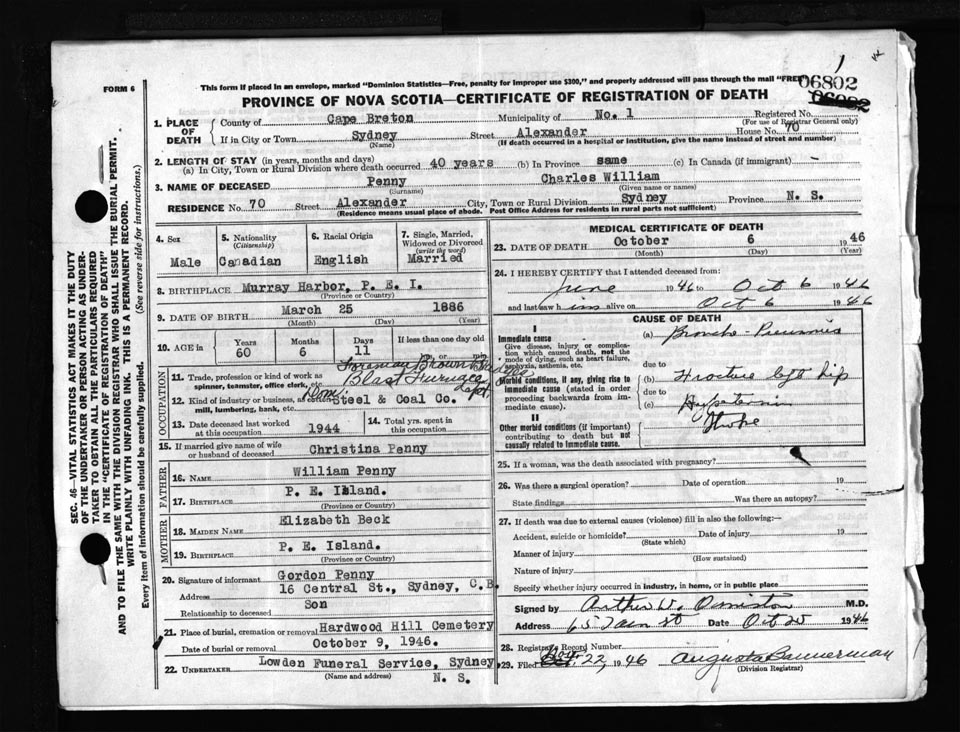 1
FORM 6
This form if placed in an envelope, marked "Dominion Statistics—Free, penalty for improper use $300," and properly addressed will pass through the mail "FREE"
06802
PROVINCE OF NOVA SCOTIA—CERTIFICATE OF REGISTRATION OF DEATH
1. PLACE OF DEATH
County of Cape Breton Municipality of No. 1 Registered No.
(For use of Registrar General only)
If in City or Town Sydney Street Alexander House No. 70
(Name) (If death occurred in a hospital or institution, give the name instead of street and number)
2. LENGTH OF STAY (in years, months and days)
(a) In City, Town or Rural Division where death occurred 40 years (b) In Province same (c) In Canada (if immigrant) -
3. NAME OF DECEASED Penny Charles William
(Surname) (Given name or names)
RESIDENCE No. 70 Street Alexander City, Town or Rural Division Sydney Province N. S.
(Residence means usual place of abode. Post Office Address for residents in rural parts not sufficient)
4. Sex
Male
5. Nationality
(Citizenship)
Canadian
6. Racial Origin
English
7. Single, Married, Widowed or Divorced
(write the word)
Married
8. BIRTHPLACE Murray Harbor, P. E. I.
(Province or Country)
9. DATE OF BIRTH March 25 1886
(Month) (Day) (Year)
10. AGE in Years Months Days If less than one day old
60 6 11 hrs. or min.
OCCUPATION
11. Trade, profession or kind of work as spinner, teamster, office clerk, etc.
Foreman
Blast Furnace Dept.
12. Kind of industry or business, as cotton mill, lumbering, bank, etc. Dom. Steel & Coal Co.
13. Date deceased last worked at this occupation 1944
14. Total yrs. spent in this occupation
15. If married give name of wife or husband of deceased Christina Penny
FATHER
16. Name William Penny
17. Birthplace P. E. Island.
(Province or Country)
MOTHER
18. Maiden Name Elizabeth Beck
19. Birthplace P. E. Island.
(Province or Country)
20. Signature of informant Gordon Penny
Address 16 Central St., Sydney, C.B.
Relationship to deceased Son
21. Place of burial, cremation or removal Hardwood Hill Cemetery
Date of burial or removal October 9, 1946.
22. Undertaker Lowden Funeral Service, Sydney
(Name and address) N. S.
MEDICAL CERTIFICATE OF DEATH
23. DATE OF DEATH October 6 1946
(Month) (Day) (Year)
24. I HEREBY CERTIFY that I attended deceased from:
June 1946 to Oct 6 1946
and last saw him alive on Oct 6 1946
CAUSE OF DEATH
I
Immediate cause
Give disease, injury or complication which caused death, not the mode of dying, such as heart failure, asphyxia, asthenia, etc.
(a) Broncho-Pneumonia
due to
Morbid conditions, if any, giving rise to immediate cause (stated in order proceeding backwards from immediate cause).
(b) Fracture left hip
due to
(c) Hypertension
II
Other morbid conditions (if important) contributing to death but not causally related to immediate cause.
Stroke
25. If a woman, was the death associated with pregnancy?
26. Was there a surgical operation? Date of operation 19
State findings Was there an autopsy?
27. If death was due to external causes (violence) fill in also the following:—
Accident, suicide or homicide? Date of injury 19
(State which)
Manner of injury
(How sustained)
Nature of injury
Specify whether injury occurred in industry, in home, or in public place
Signed by Arthur W. Ormiston M.D.
Address Date Oct 25 1946
28. Registrar's Record Number
29. Filed Nov. 22, 1946 Augusta Bannerman
(Division Registrar)
SEC. 46—VITAL STATISTICS ACT MAKES IT THE DUTY
OF THE UNDERTAKER OR PERSON ACTING AS UNDERTAKER TO OBTAIN ALL THE PARTICULARS REQUIRED
IN THE "CERTIFICATE OF REGISTRATION OF DEATH"
AND TO FILE THE SAME WITH THE DIVISION REGISTRAR WHO SHALL ISSUE THE BURIAL PERMIT.
WRITE PLAINLY WITH UNFADING INK. THIS IS A PERMANENT RECORD.
Every item of information should be carefully supplied. (See reverse side for instructions.)